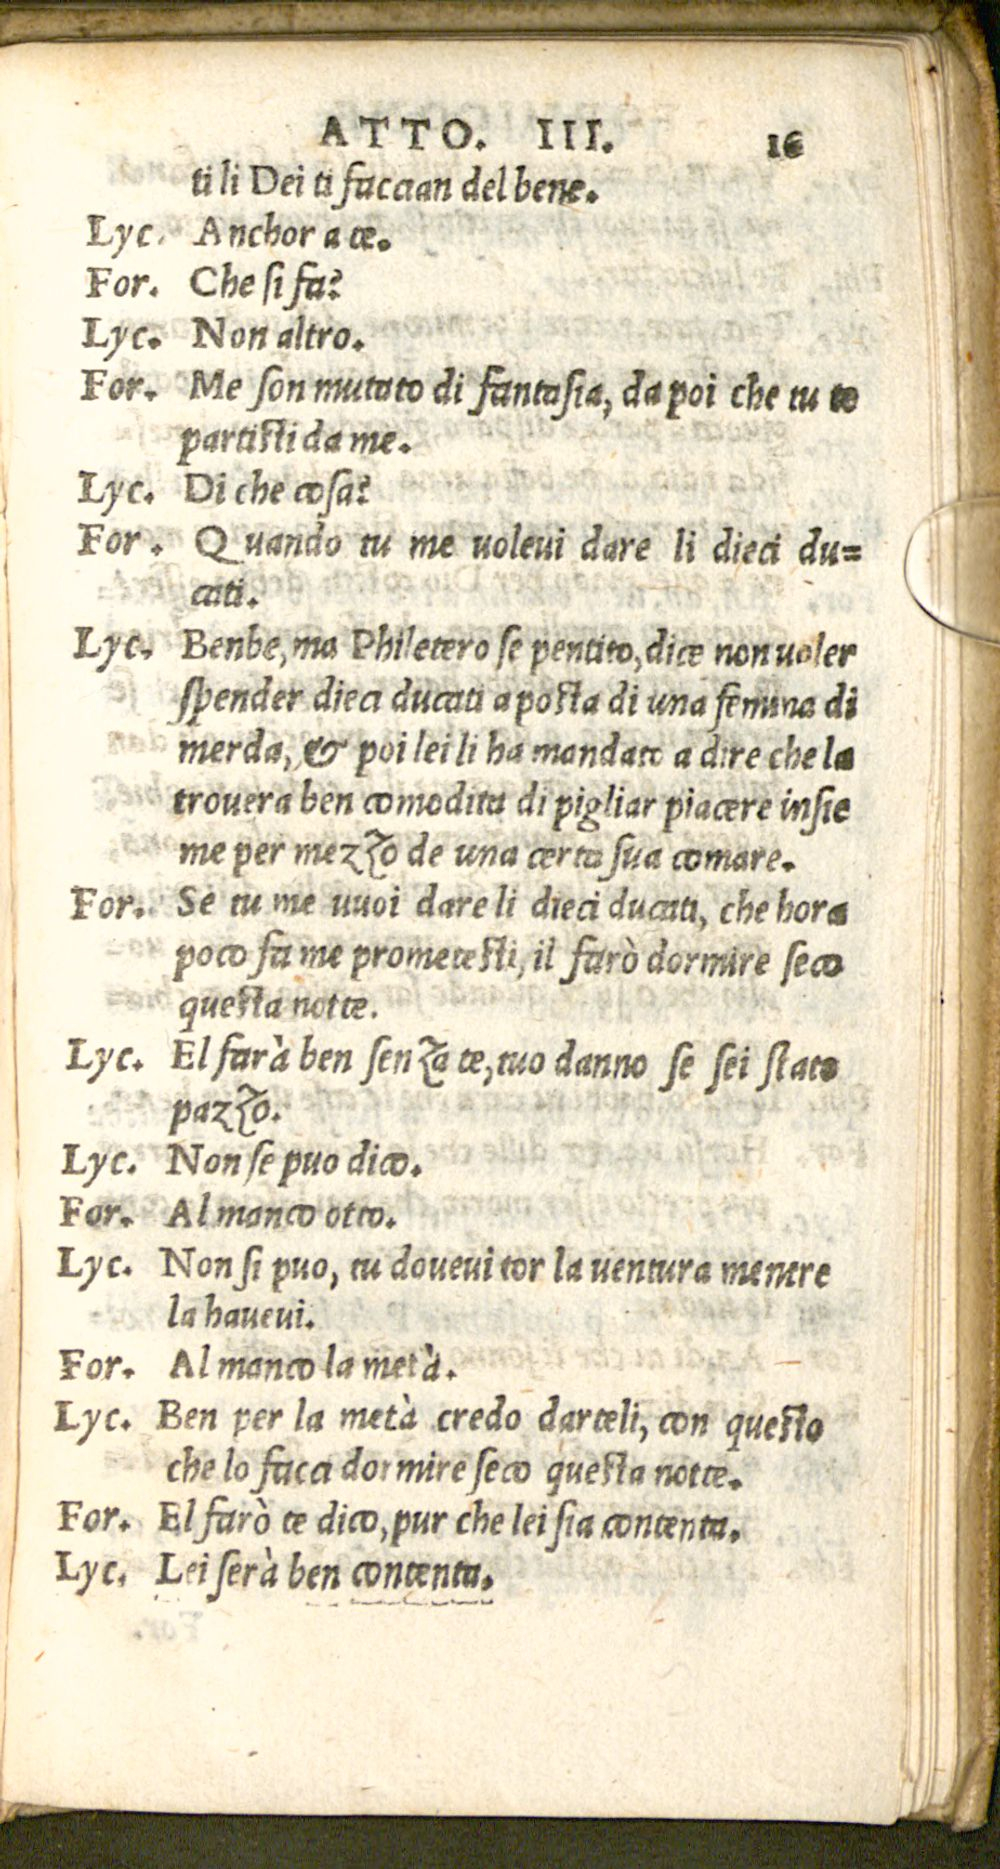 ATTO. III. 16
ti li Dei ti faccian del bene.
Lyc. Anchor a te.
For. Che si fa?
Lyc. Non altro.
For. Me son mutato di fantasia, da poi che tu te
partisti da me.
Lyc. Di che cosa?
For. Quando tu me uoleui dare li dieci du=
cati.
Lyc. Benbe, ma Philetero se pentito, dice non uoler
spender dieci ducati a posta di una femina di
merda, & poi lei li ha mandato a dire che la
trouera ben comodita di pigliar piacere insie
me per mezzo de una certa sua comare.
For. Se tu me uuoi dare li dieci ducati, che hora
poco fa me prometesti, il farò dormire seco
questa notte.
Lyc. El farà ben senza te, tuo danno se sei stato
pazzo.
Lyc. Non se puo dico.
For. Al manco otto.
Lyc. Non si puo, tu doueui tor la uentura mentre
la haueui.
For. Al manco la metà.
Lyc. Ben per la metà credo darteli, con questo
che lo facci dormire seco questa notte.
For. El farò te dico, pur che lei sia contenta.
Lyc. Lei serà ben contenta.